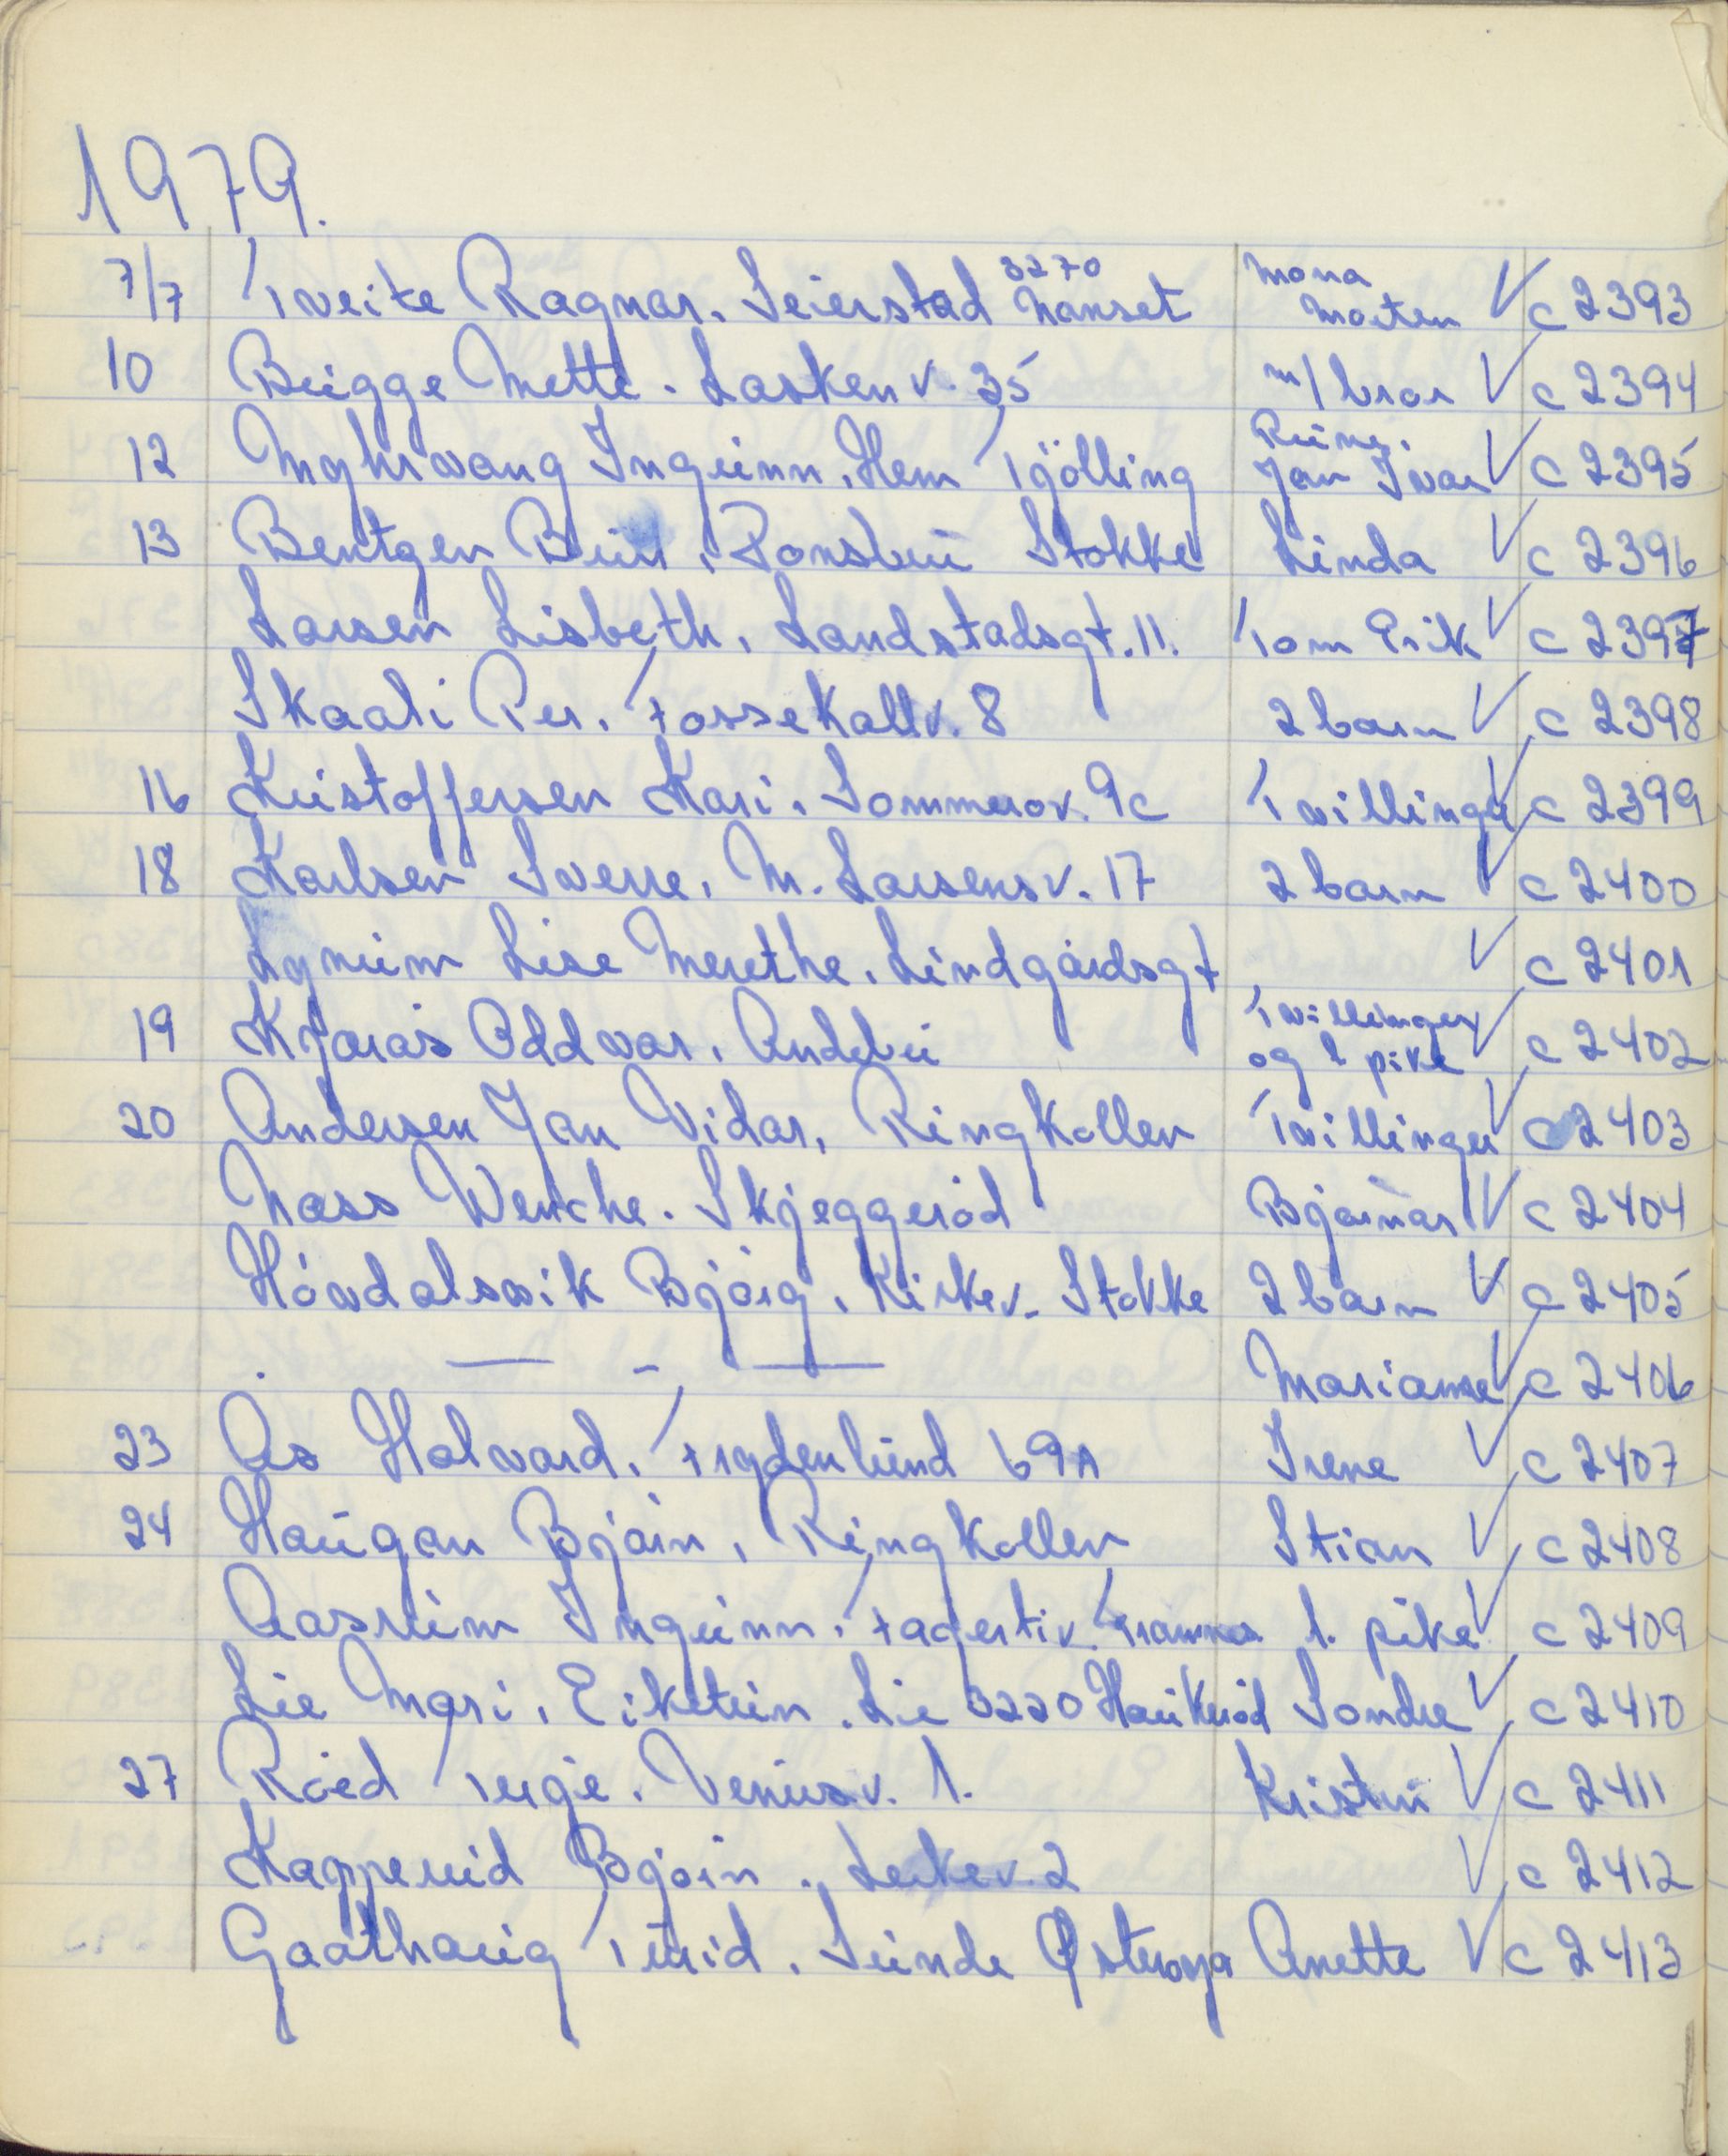 1979.
7/7 Tveite Ragnar. Seierstad 3270 Nanset Mona Morten V c 2393
10 Brigge Mette. Laskenv. 35 m/bror V c 2394
12 Myhrvang Ingunn. Hem Tjölling Rune. Jan Ivar V c 2395
13 Bentzen Stokke Linda V c 2396
Larsen Lisbeth. Landstadsgt. 11. Tom Erik V c 2397
Skaali Per. Fossekallv. 8 2 barn V c 2398
16 Kristoffersen Kari. Sommerov. 9c Tvillinger V c 2399
18 Karlsen Sverre. M. Larsensv. 17 2 barn V c 2400
Lynum Lise Merethe. Lindgårdsgt V c 2401
19 Kjærås Oddvar. Andebu Tvillinger og 1 pike V c 2402
20 Andersen Jan Vidar. Ringkollen Tvillinger V c 2403
Nass Wenche. Skjeggerød Bjørnar V c 2404
Hövdalsvik Bjørg. Kirkev. Stokke 2 barn V c 2405
— - — Marianne V c 2406
23 Ås Halvard. Frydenlund 69A Irene V c 2407
24 Haugan Bjørn. Ringkollen Stian V c 2408
Aasrum Ingunn. Fagertiv. 1. pike V c 2409
Lie Mari. Eikstein. Lie 3220 Haukerød Sondre V c 2410
27 Röed Terje. Venusv. 1. Kristin V c 2411
Kapperud Bjørn. Lerkev. 2 V c 2412
Gaathaug Turid. Sunde Østerøya Anette V c 2413